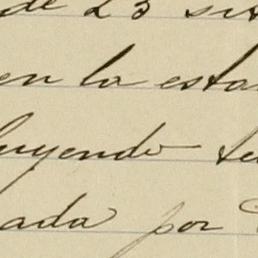 de 23 sit
en la esta
luyendo te
ada por